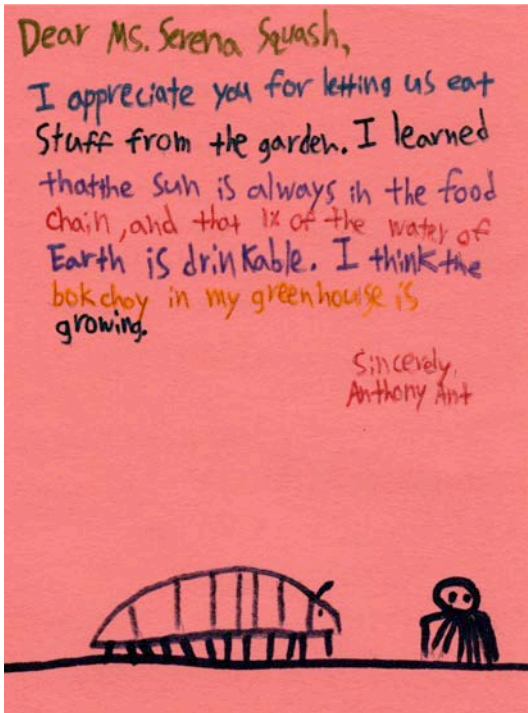 Dear Ms. Serena Squash,
I appreciate you for letting us eat
Stuff from the garden. I learned
thatthe Sun is always in the food
chain, and that 1% of the water of
Earth is drinkable. I think the
bok choy in my greenhouse is
growing.
Sincerely,
Anthony Ant